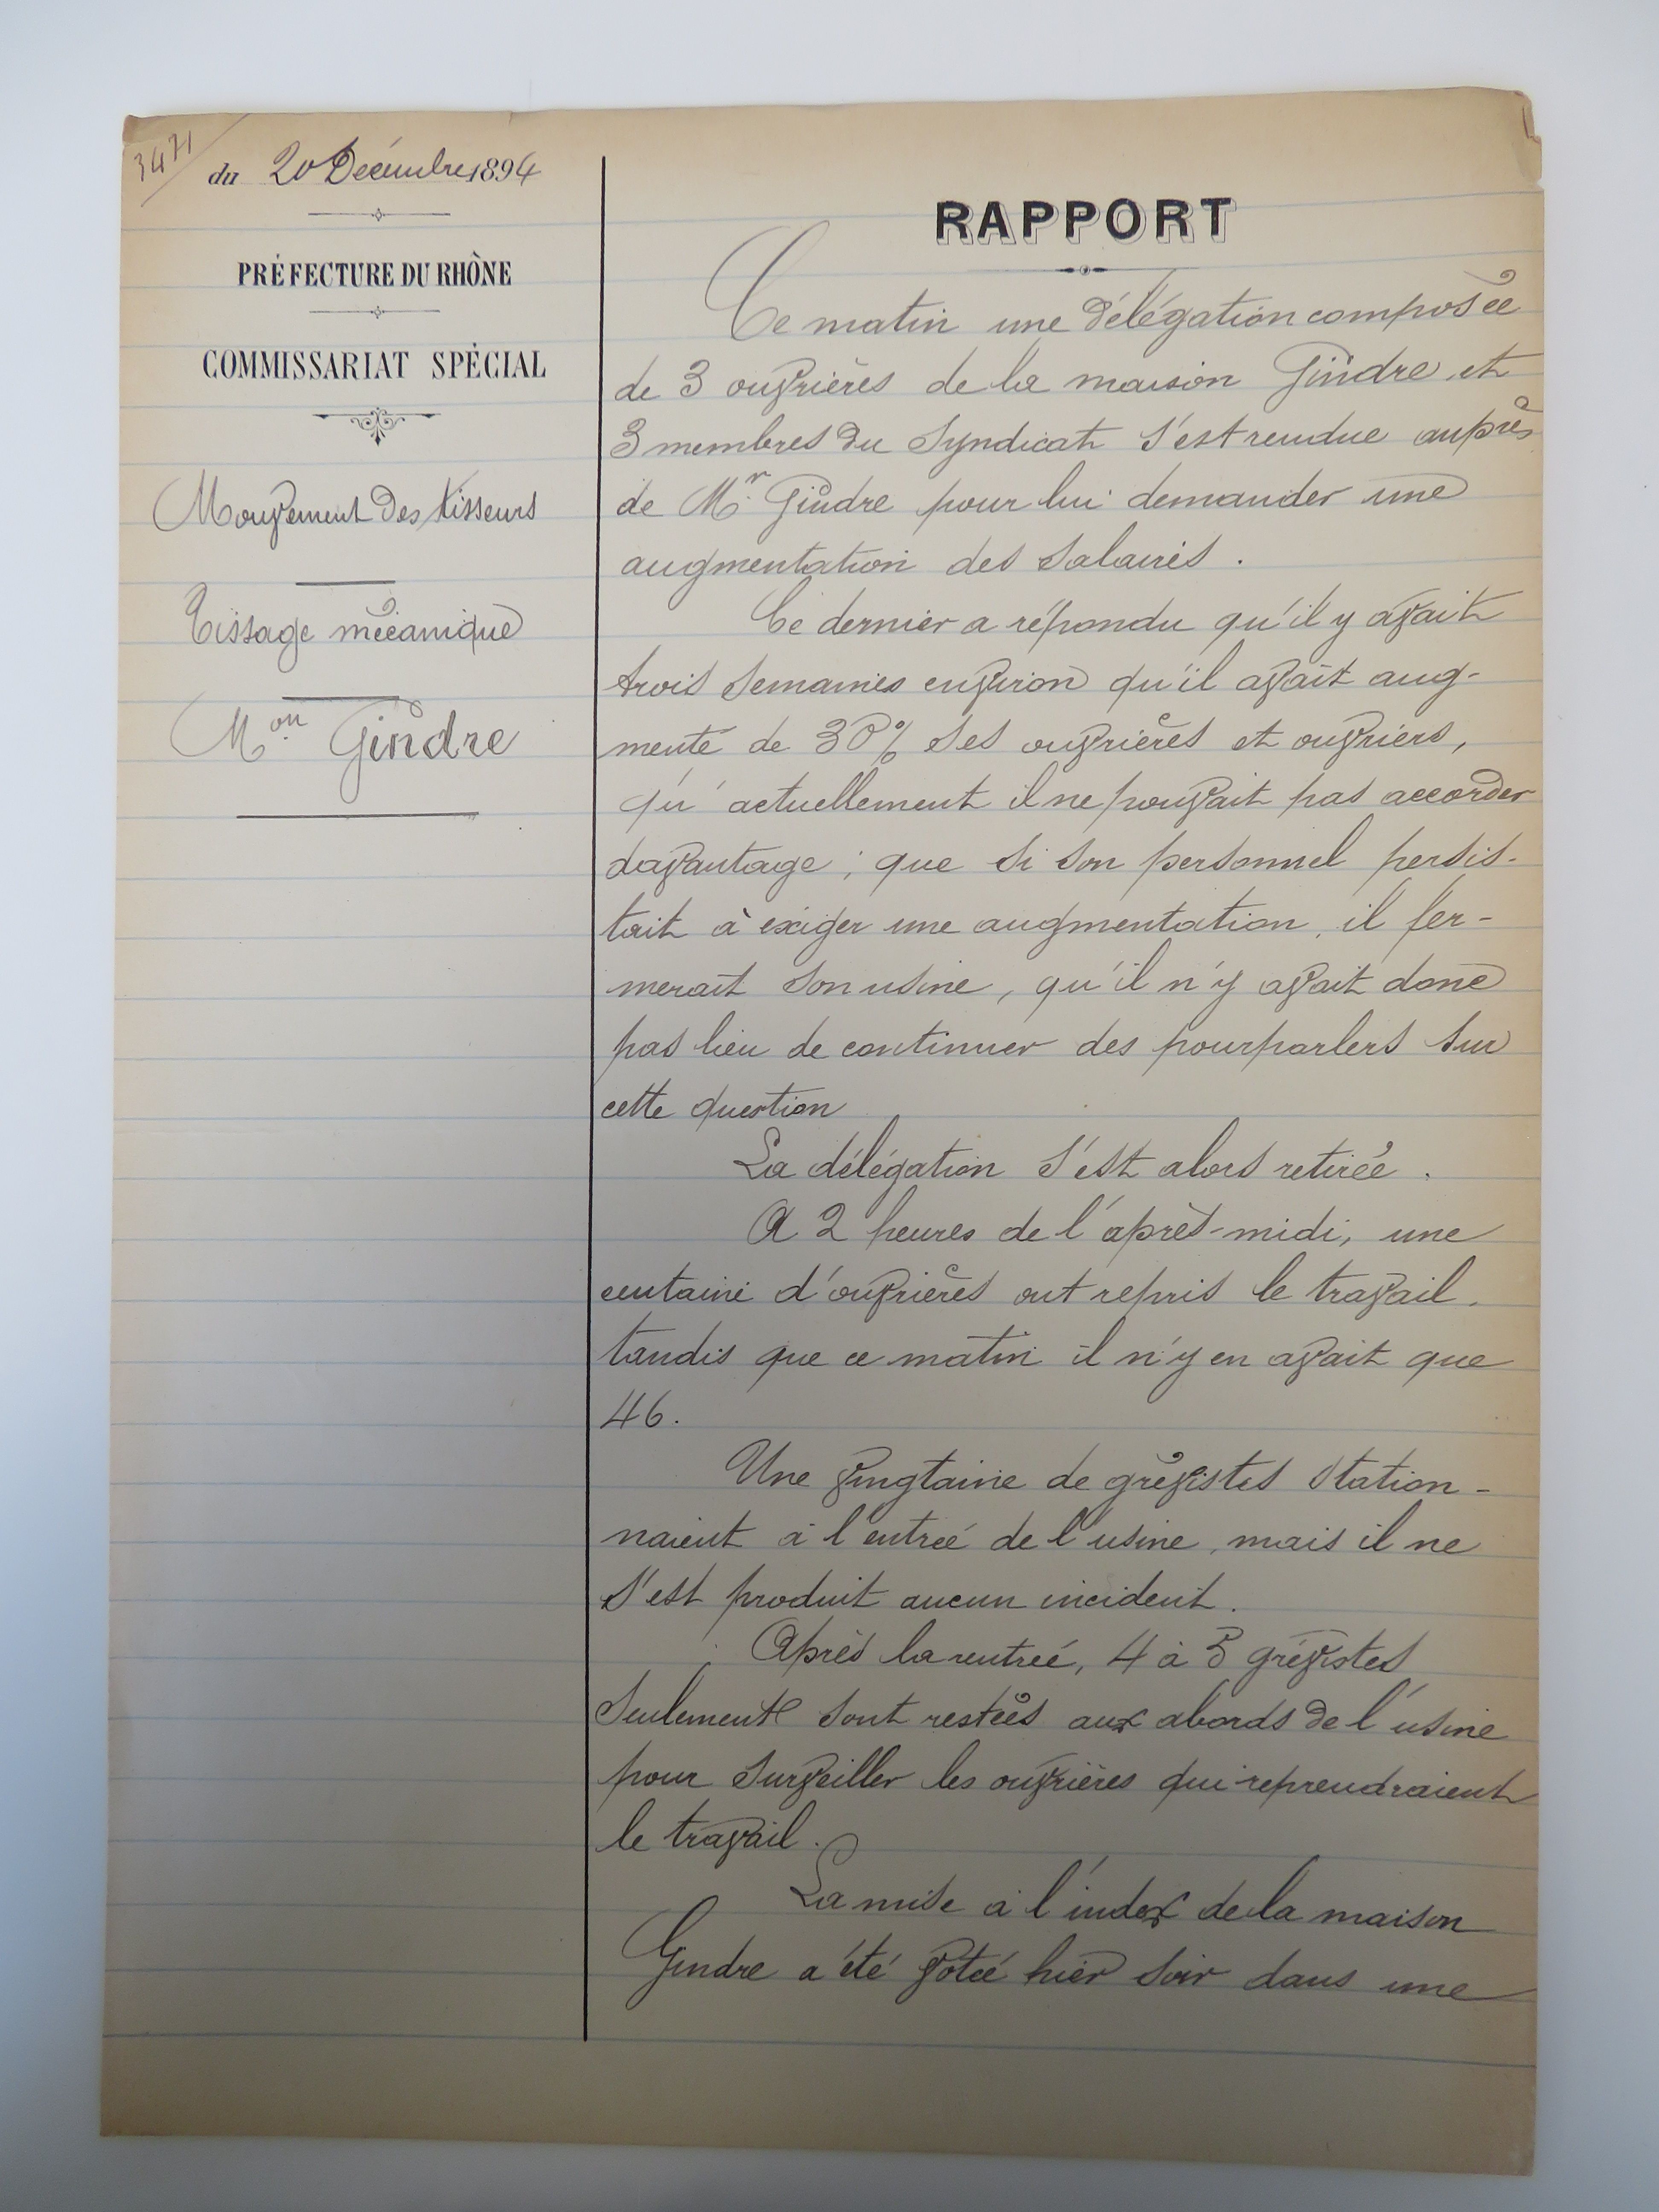 3471
du 20 Décembre 1894
PRÉFECTURE DU RHÔNE
COMMISSARIAT SPÉCIAL
Mouvement des tisseurs
Tissage mécanique
Mon Gindre
RAPPORT
Ce matin une délégation composée
de 3 ouvrières de la maison Gindre et
3 membres du Syndicat s'est rendue auprès
de Mr Gindre pour lui demander une
augmentation des salaires.
Ce dernier a répondu qu'il y avait
trois semaines environ qu'il avait aug-
menté de 30% ses ouvrières et ouvriers,
qu'actuellement il ne pouvait pas accorder
davantage ; que si son personnel persis-
tait à exiger une augmentation, il fer-
merait son usine, qu'il n'y avait donc
pas lieu de continuer des pourparlers sur
cette question
La délégation s'est alors retirée.
A 2 heures de l'après-midi, une
centaine d'ouvrières ont repris le travail,
tandis que ce matin il n'y en avait que
46.
Une vingtaine de grévistes station-
naient à l'entrée de l'usine, mais il ne
s'est produit aucun incident.
Après la rentrée, 4 à 5 grévistes
seulement sont restées aux abords de l'usine
pour surveiller les ouvrières qui reprendraient
le travail.
La mise à l'index de la maison
Gindre a été votée hier soir dans une